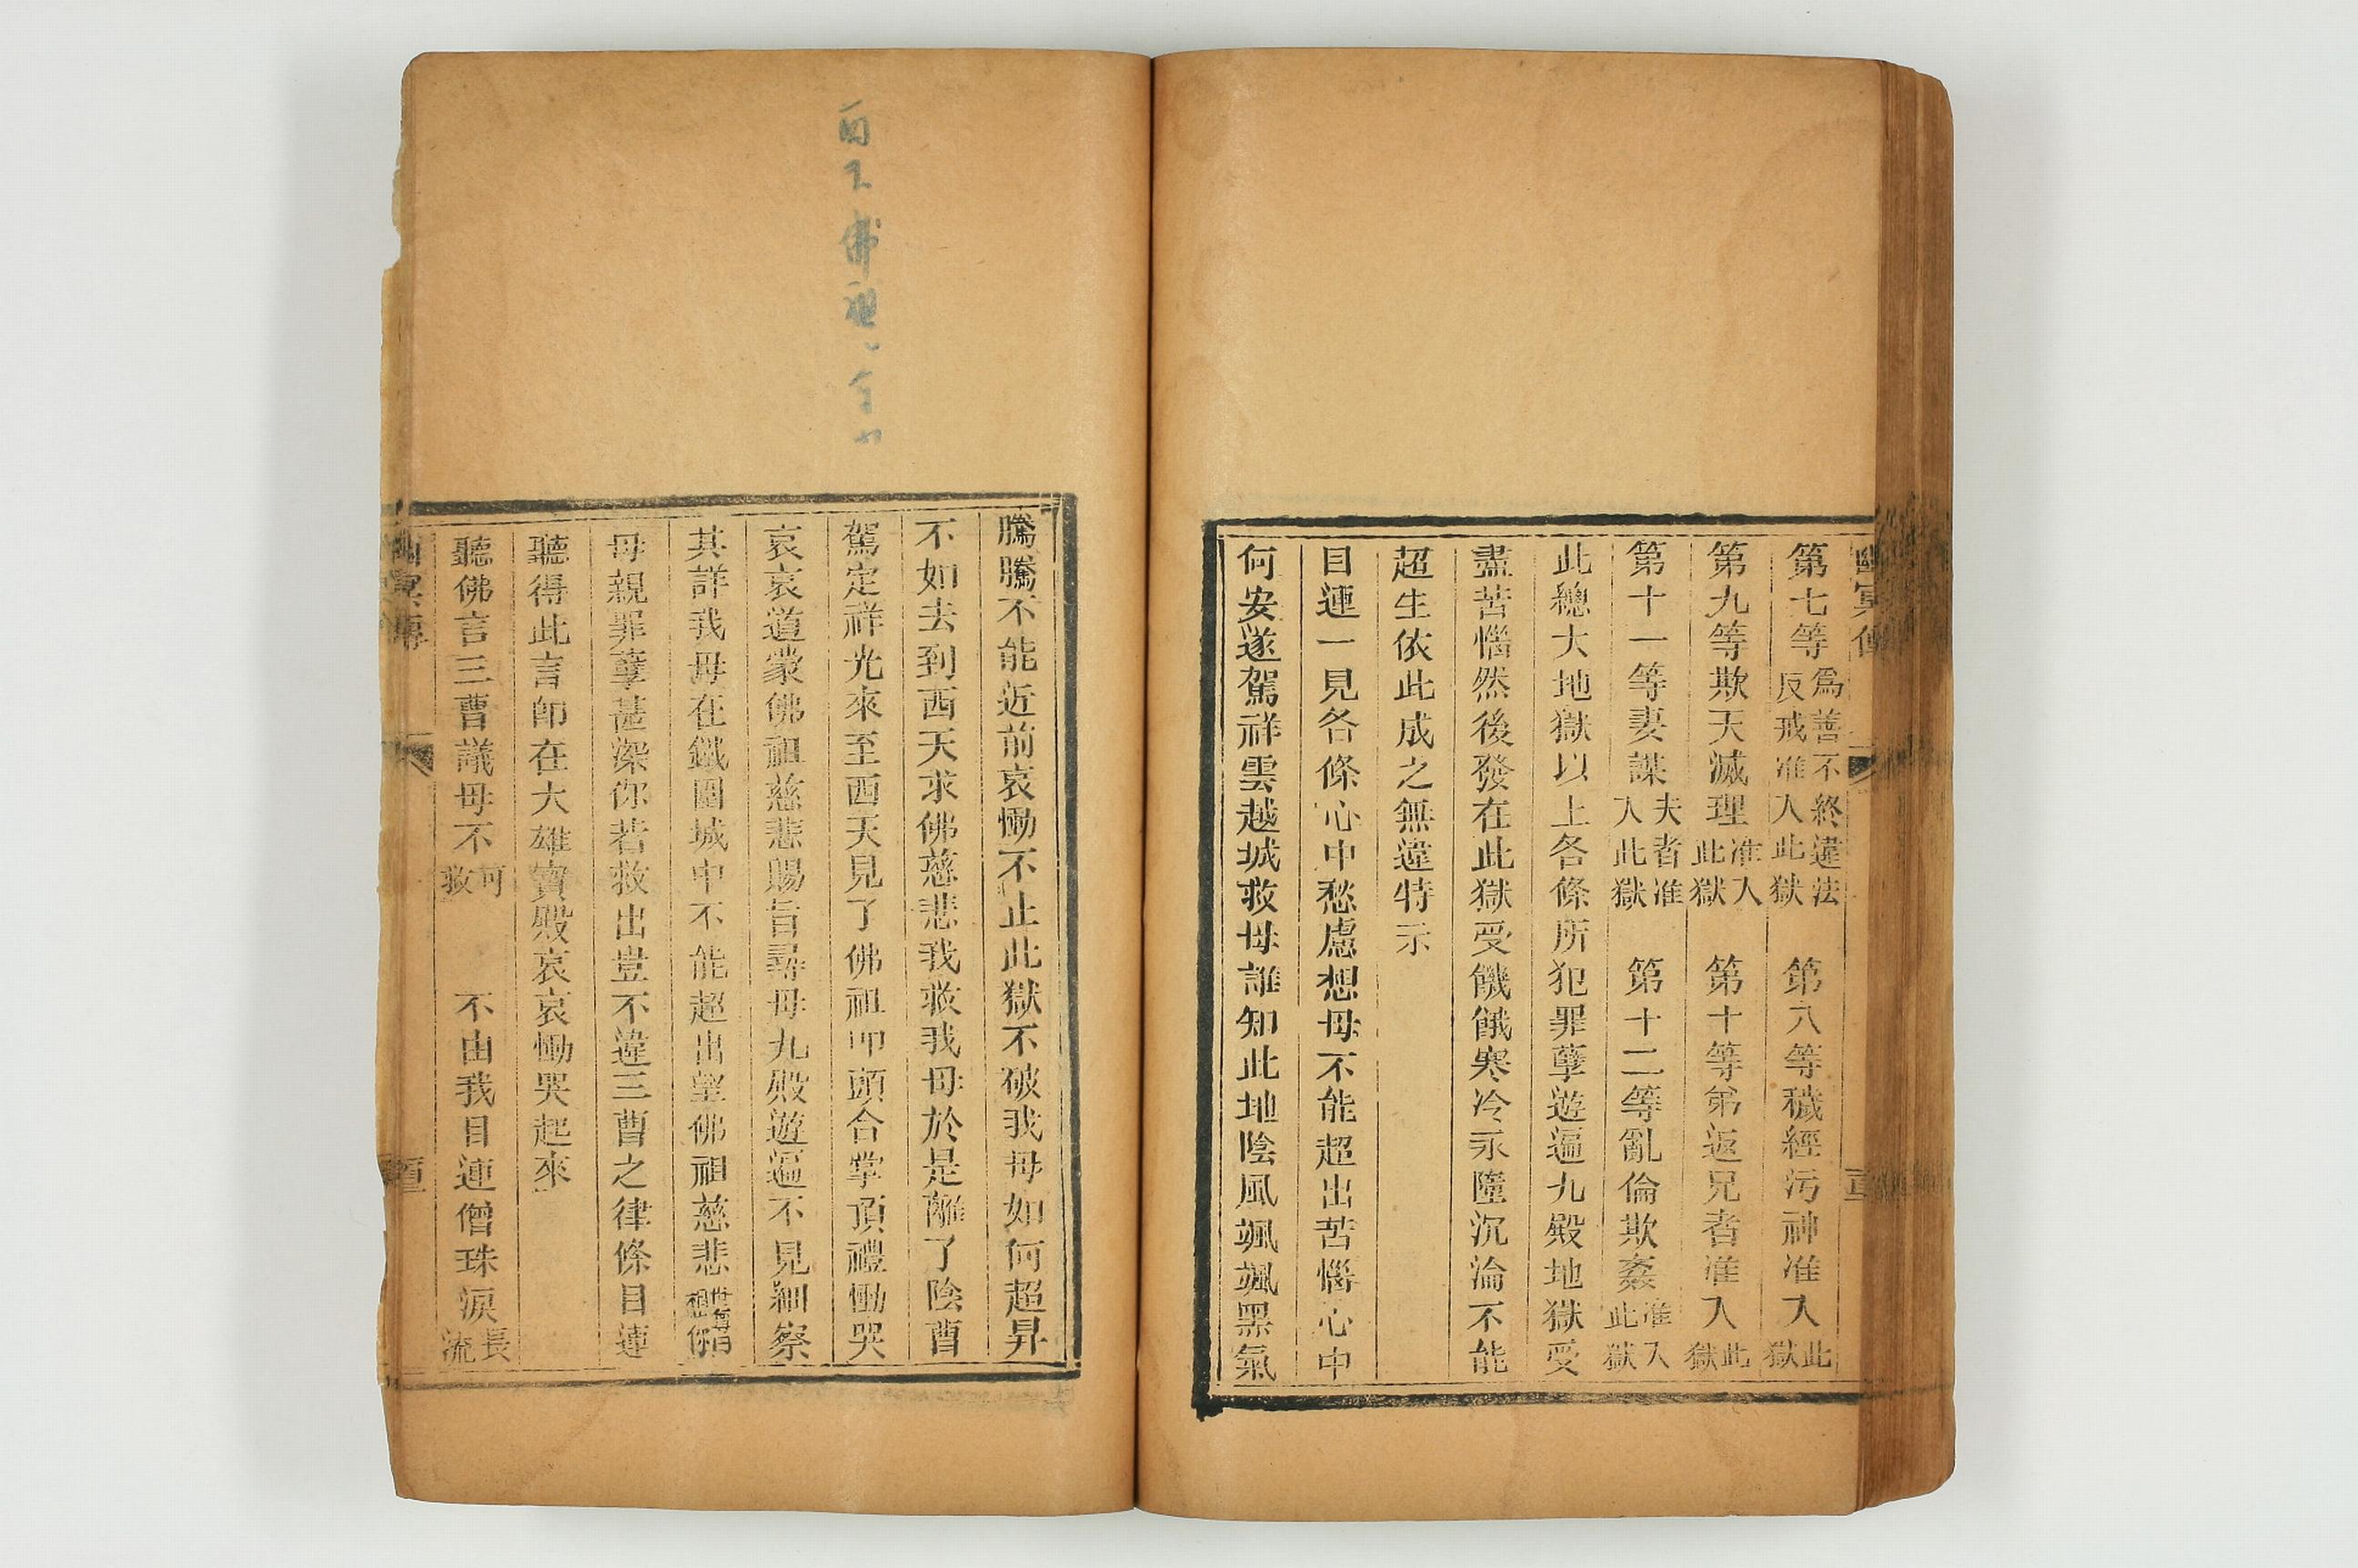 幽冥傳
第七等爲善不終違法反戒准入此獄　第八等穢經污神准入此獄
第九等欺天滅理准入此獄　第十等弟返兄者准入此獄
第十一等妻謀夫者准入此獄　第十二等亂倫欺姦准入此獄
此總大地獄以上各條所犯罪孽遊遍九殿地獄受
盡苦惱然後發在此獄受饑餓寒冷永墮沉淪不能
超生依此成之無違特示
目連一見各條心中愁慮想母不能超出苦惱心中
何安遂駕祥雲越城救母誰知此地陰風颯颯黑氣
騰騰不能近前哀慟不止此獄不破我母如何超昇
不如去到西天求佛慈悲我救我母於是離了陰曹
駕定祥光來至西天見了佛祖叩頭合掌頂禮慟哭
哀哀道蒙佛祖慈悲賜旨尋母九殿遊遍不見細察
其詳我母在鐵圍城中不能超出望佛祖慈悲世尊曰想你
母親罪孽甚深你若救出豈不違三曹之律條目連
聽得此言卽在大雄寶殿哀哀慟哭起來
聽佛言三曹議母不可救　不由我目連僧珠淚長流
幽冥傳